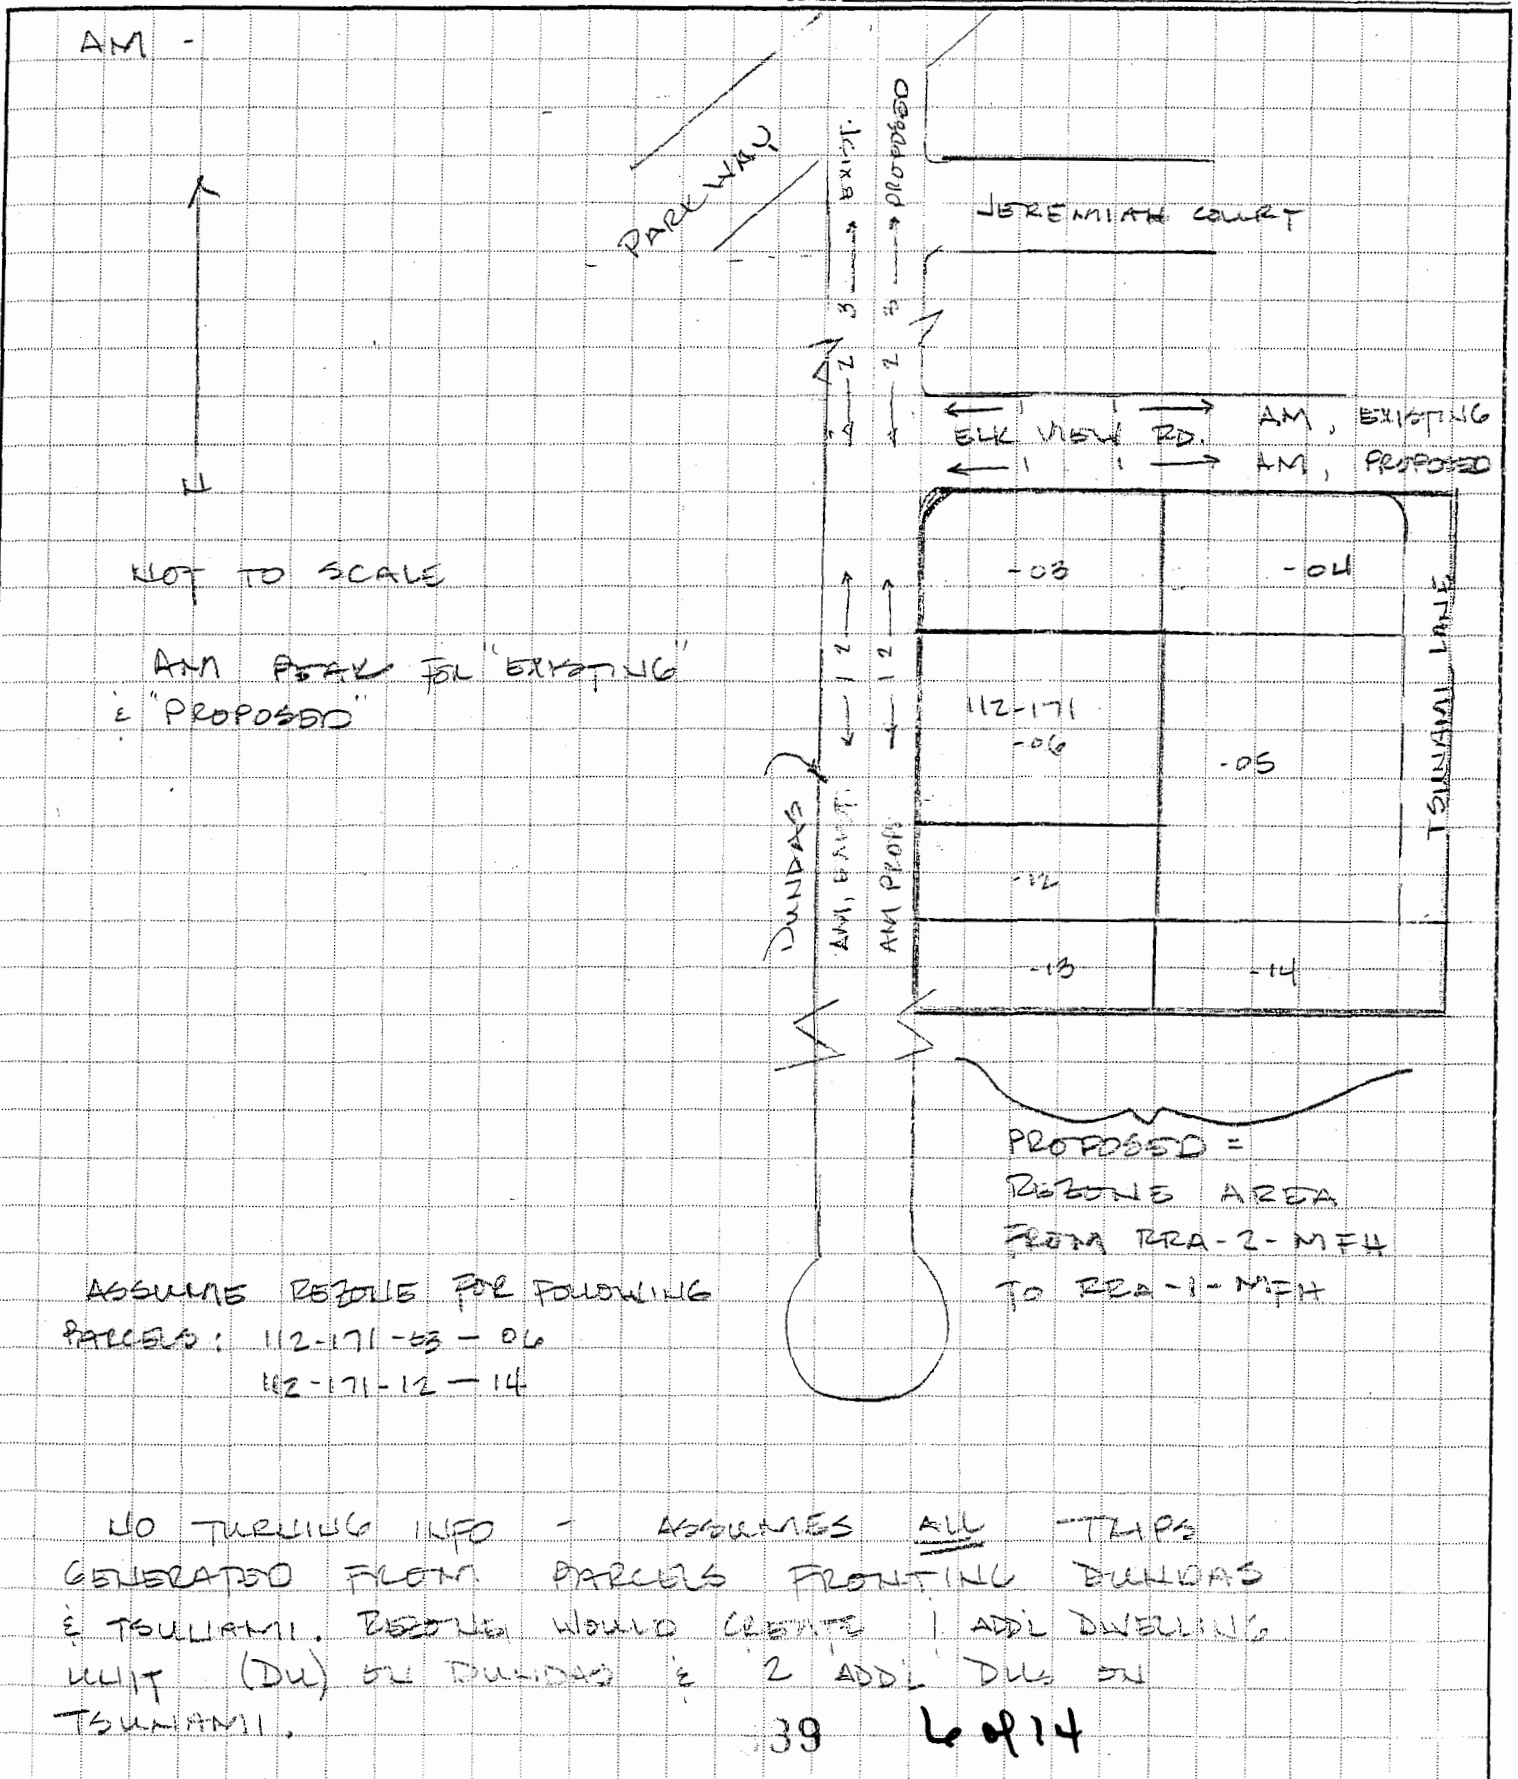 AM -
PARKWAY
3 → EXIST.
3 → PROPOSED
JEREMIAH COURT
← 2
← 2
← 1 1 → AM, EXISTING
ELK VIEW RD.
← 1 1 → AM, PROPOSED
N
NOT TO SCALE
AM PEAK FOR "EXISTING"
& "PROPOSED"
← 1 2 →
← 1 2 →
-03
-04
112-171
-06
-05
TSUNAMI LANE
DUNDAS
AM, EXIST.
AM PROP.
-12
-13
-14
PROPOSED =
REZONE AREA
FROM RRA-2-MFH
TO RRA-1-MFH
ASSUME REZONE FOR FOLLOWING
PARCELS: 112-171-03 - 06
112-171-12 - 14
NO TURNING INFO - ASSUMES ALL TRIPS
GENERATED FROM PARCELS FRONTING DUNDAS
& TSUNAMI. REZONE WOULD CREATE 1 ADD'L DWELLING
UNIT (DU) ON DUNDAS & 2 ADD'L DUs ON
TSUNAMI.
39
6 of 14